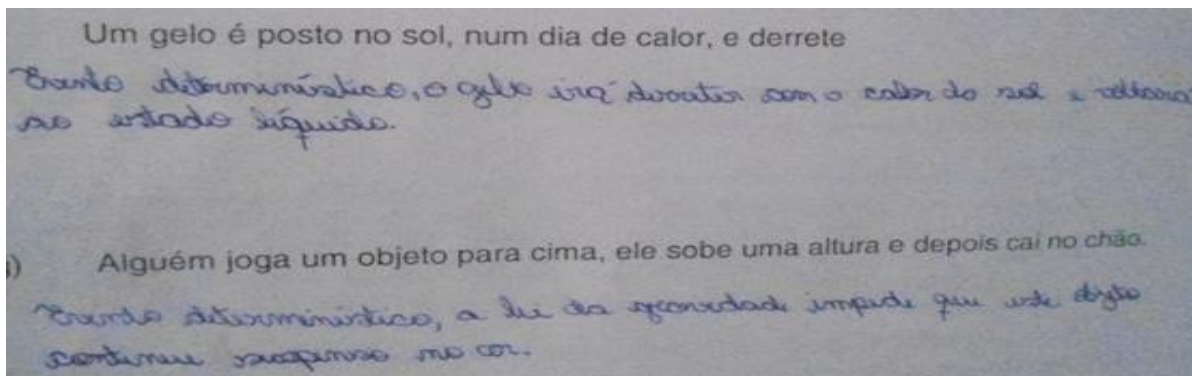 Um gelo é posto no sol, num dia de calor, e derrete
Evento determinístico, o gelo irá derreter com o calor do sol e voltará
ao estado líquido.
) Alguém joga um objeto para cima, ele sobe uma altura e depois cai no chão.
Evento determinístico, a lei da gravidade impede que este objeto
continue suspenso no ar.